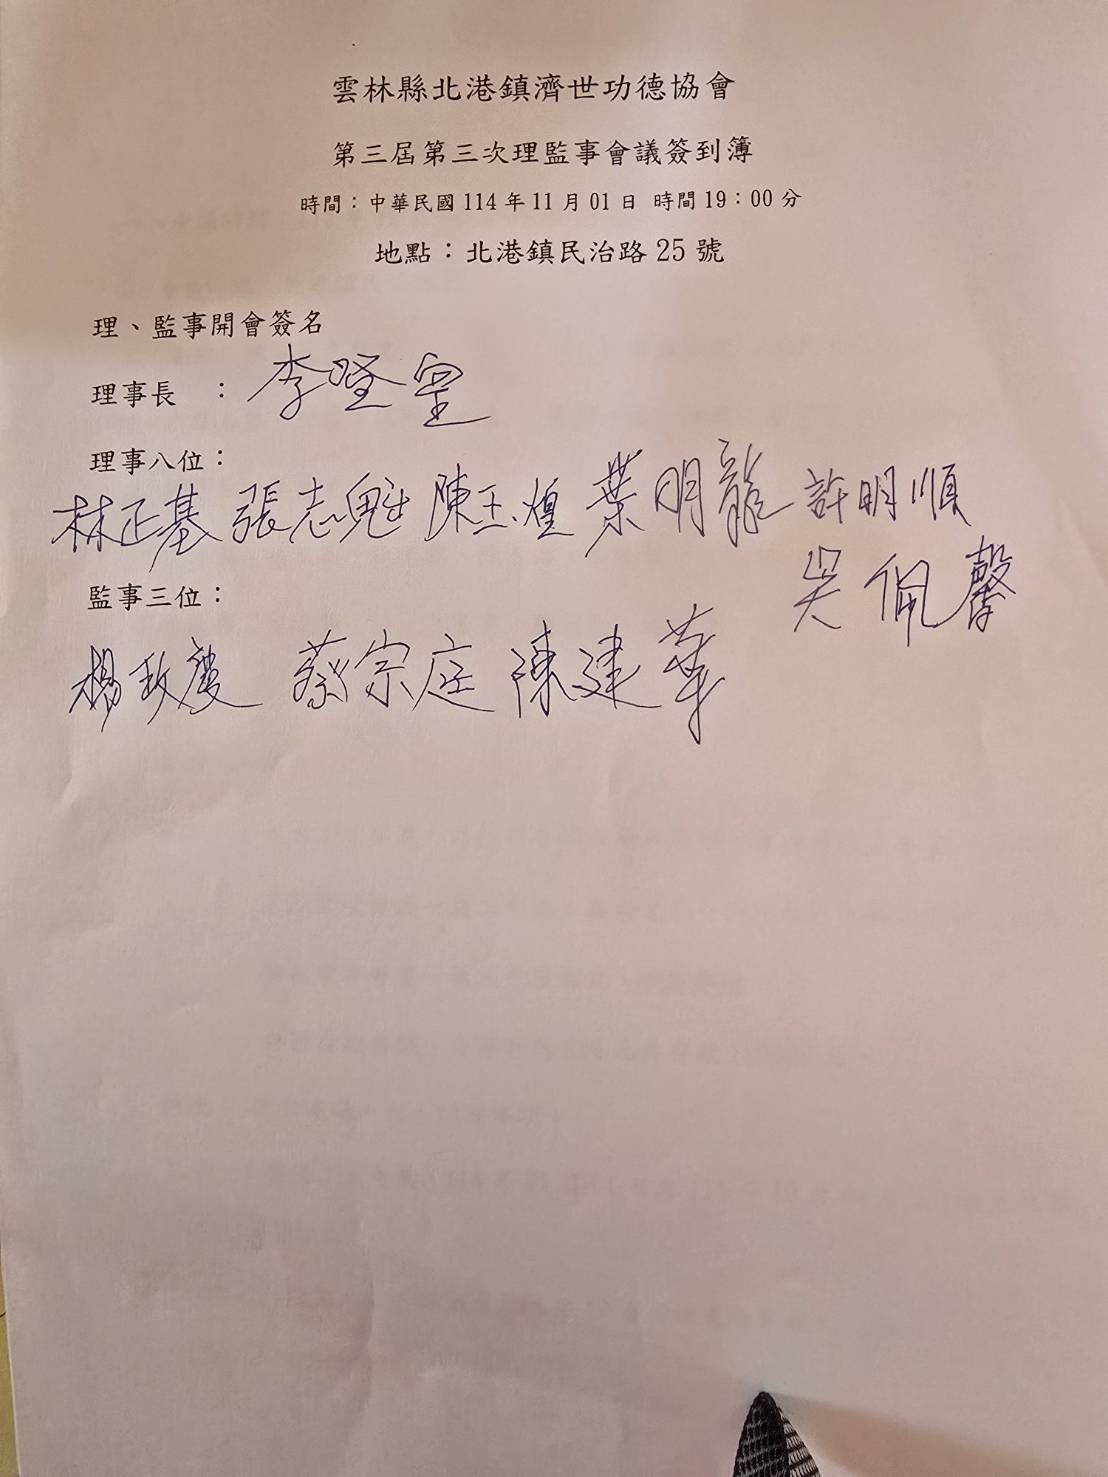 雲林縣北港鎮濟世功德協會
第三屆第三次理監事會議簽到簿
時間：中華民國 114 年 11 月 01 日 時間 19：00 分
地點：北港鎮民治路 25 號
理、監事開會簽名
理事長 ： 李登
理事八位：
林正基 張志魁 陳玉煌 葉明龍 許明順
吳佩馨
監事三位：
楊政慶 蔡宗庭 陳建華